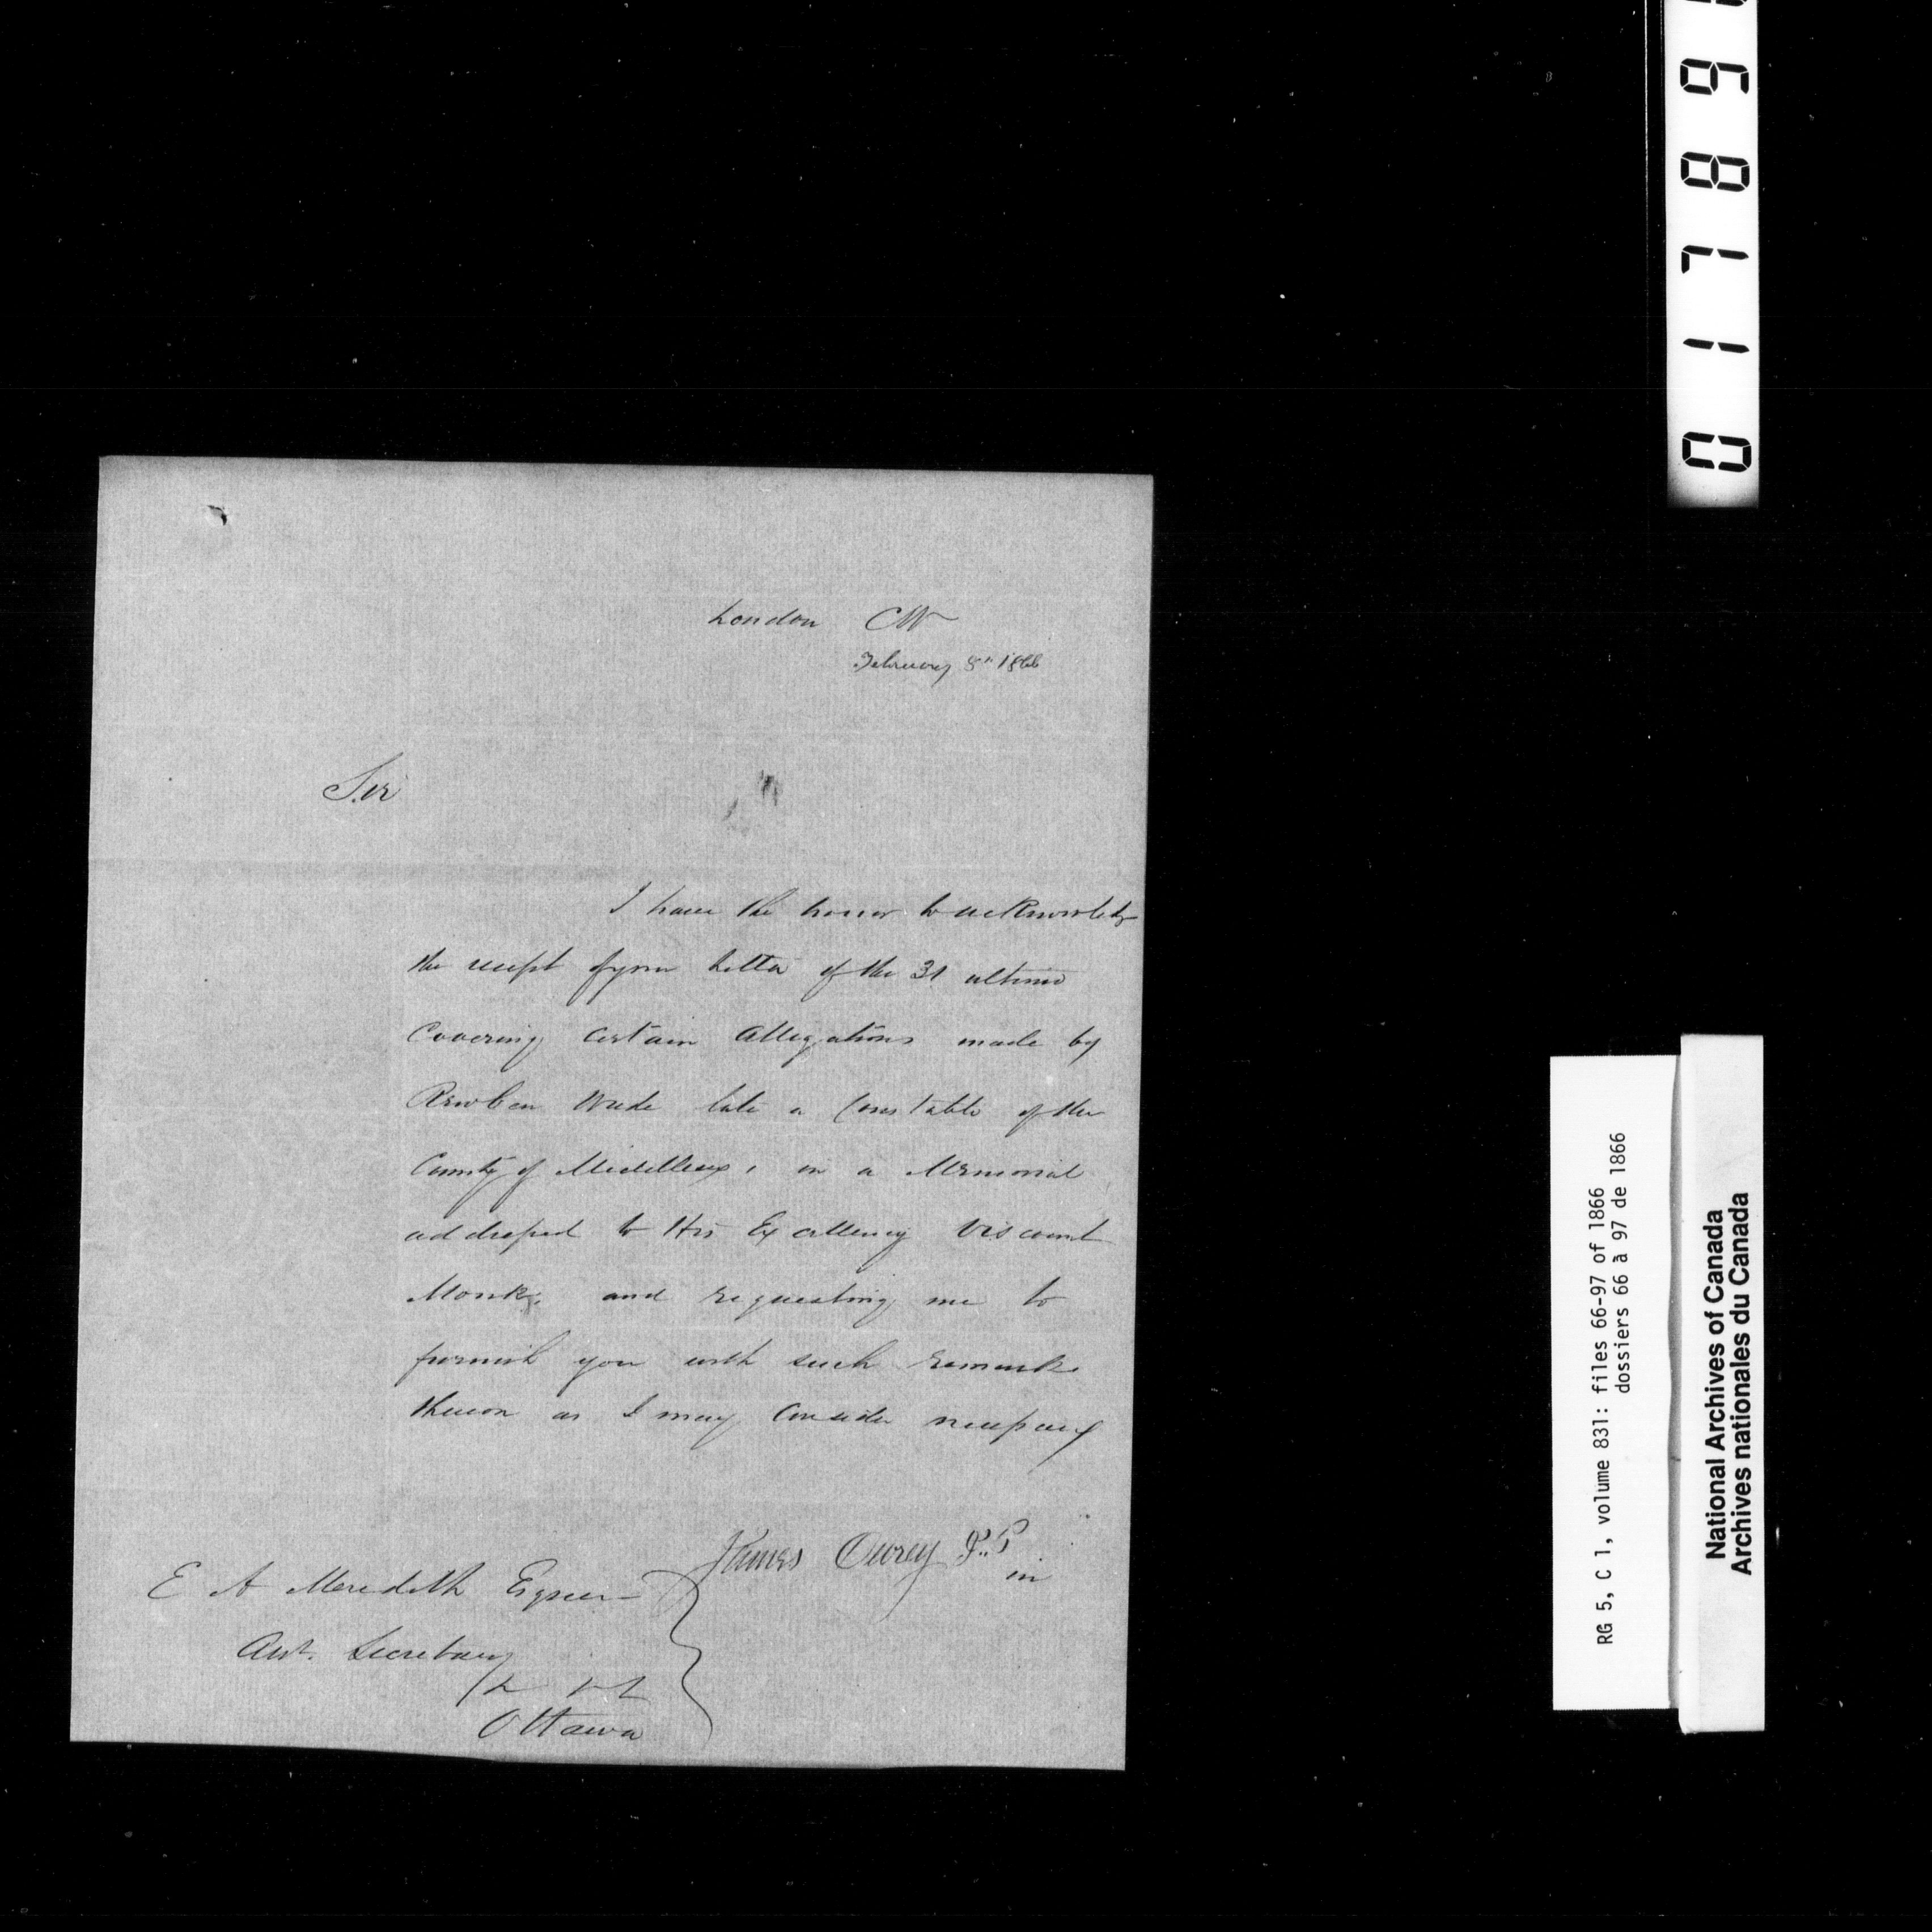 London CW
February 8th 1866
Sir
I have the honor to acknowledge
the receipt of your letter of the 31 ultimo
Covering certain allegations made by
Reuben Wade late a Constable of the
County of Middlesex, in a Memorial
addressed to His Excellency Viscount
Monk, and requesting me to
furnish you with such remarks
thereon as I may consider necessary
James
in
E A Meredith Esquire
Asst. Secretary
Ottawa
RG 5, C 1, volume 831: files 66-97 of 1866
dossiers 66 à 97 de 1866
National Archives of Canada
Archives nationales du Canada